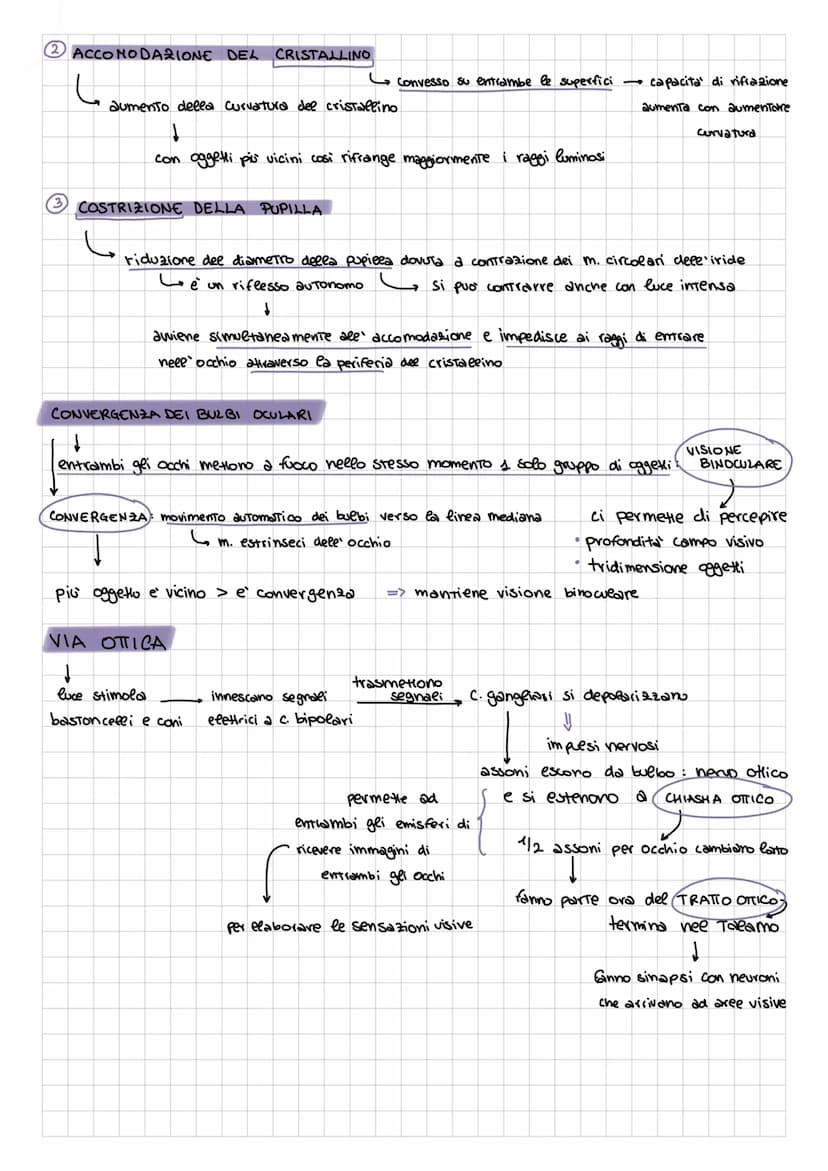 ② ACCOMODAZIONE DEL CRISTALLINO
↳ convesso su entrambe le superfici → capacita' di rifrazione
aumenta con aumentare
curvatura
↳ aumento della curvatura del cristallino
↓
con oggetti più vicini così rifrange maggiormente i raggi luminosi
③ COSTRIZIONE DELLA PUPILLA
↳ riduzione del diametro della pupilla dovuta a contrazione dei m. circolari dell'iride
↳ e' un riflesso autonomo ↳ si può contrarre anche con luce intensa
↓
avviene simultaneamente all'accomodazione e impedisce ai raggi di entrare
nell'occhio attraverso la periferia del cristallino
CONVERGENZA DEI BULBI OCULARI
↓
entrambi gli occhi mettono a fuoco nello stesso momento 1 solo gruppo di oggetti: VISIONE
BINOCULARE
CONVERGENZA: movimento automatico dei bulbi verso la linea mediana
↳ m. estrinseci dell'occhio
ci permette di percepire
• profondità campo visivo
• tridimensione oggetti
più oggetto e' vicino > e' convergenza => mantiene visione binoculare
VIA OTTICA
↓
luce stimola → innescano segnali trasmettono segnali → C. gangliari si depolarizzano
bastoncelli e coni elettrici a c. bipolari
⇓
impulsi nervosi
assoni escono da bulbo: nervo ottico
e si estenono a CHIASMA OTTICO
permette ad
entrambi gli emisferi di
ricevere immagini di
entrambi gli occhi
per elaborare le sensazioni visive
1/2 assoni per occhio cambiano lato
↓
fanno parte ora del TRATTO OTTICO:
termina nel Talamo
↓
fanno sinapsi con neuroni
che arrivano ad aree visive